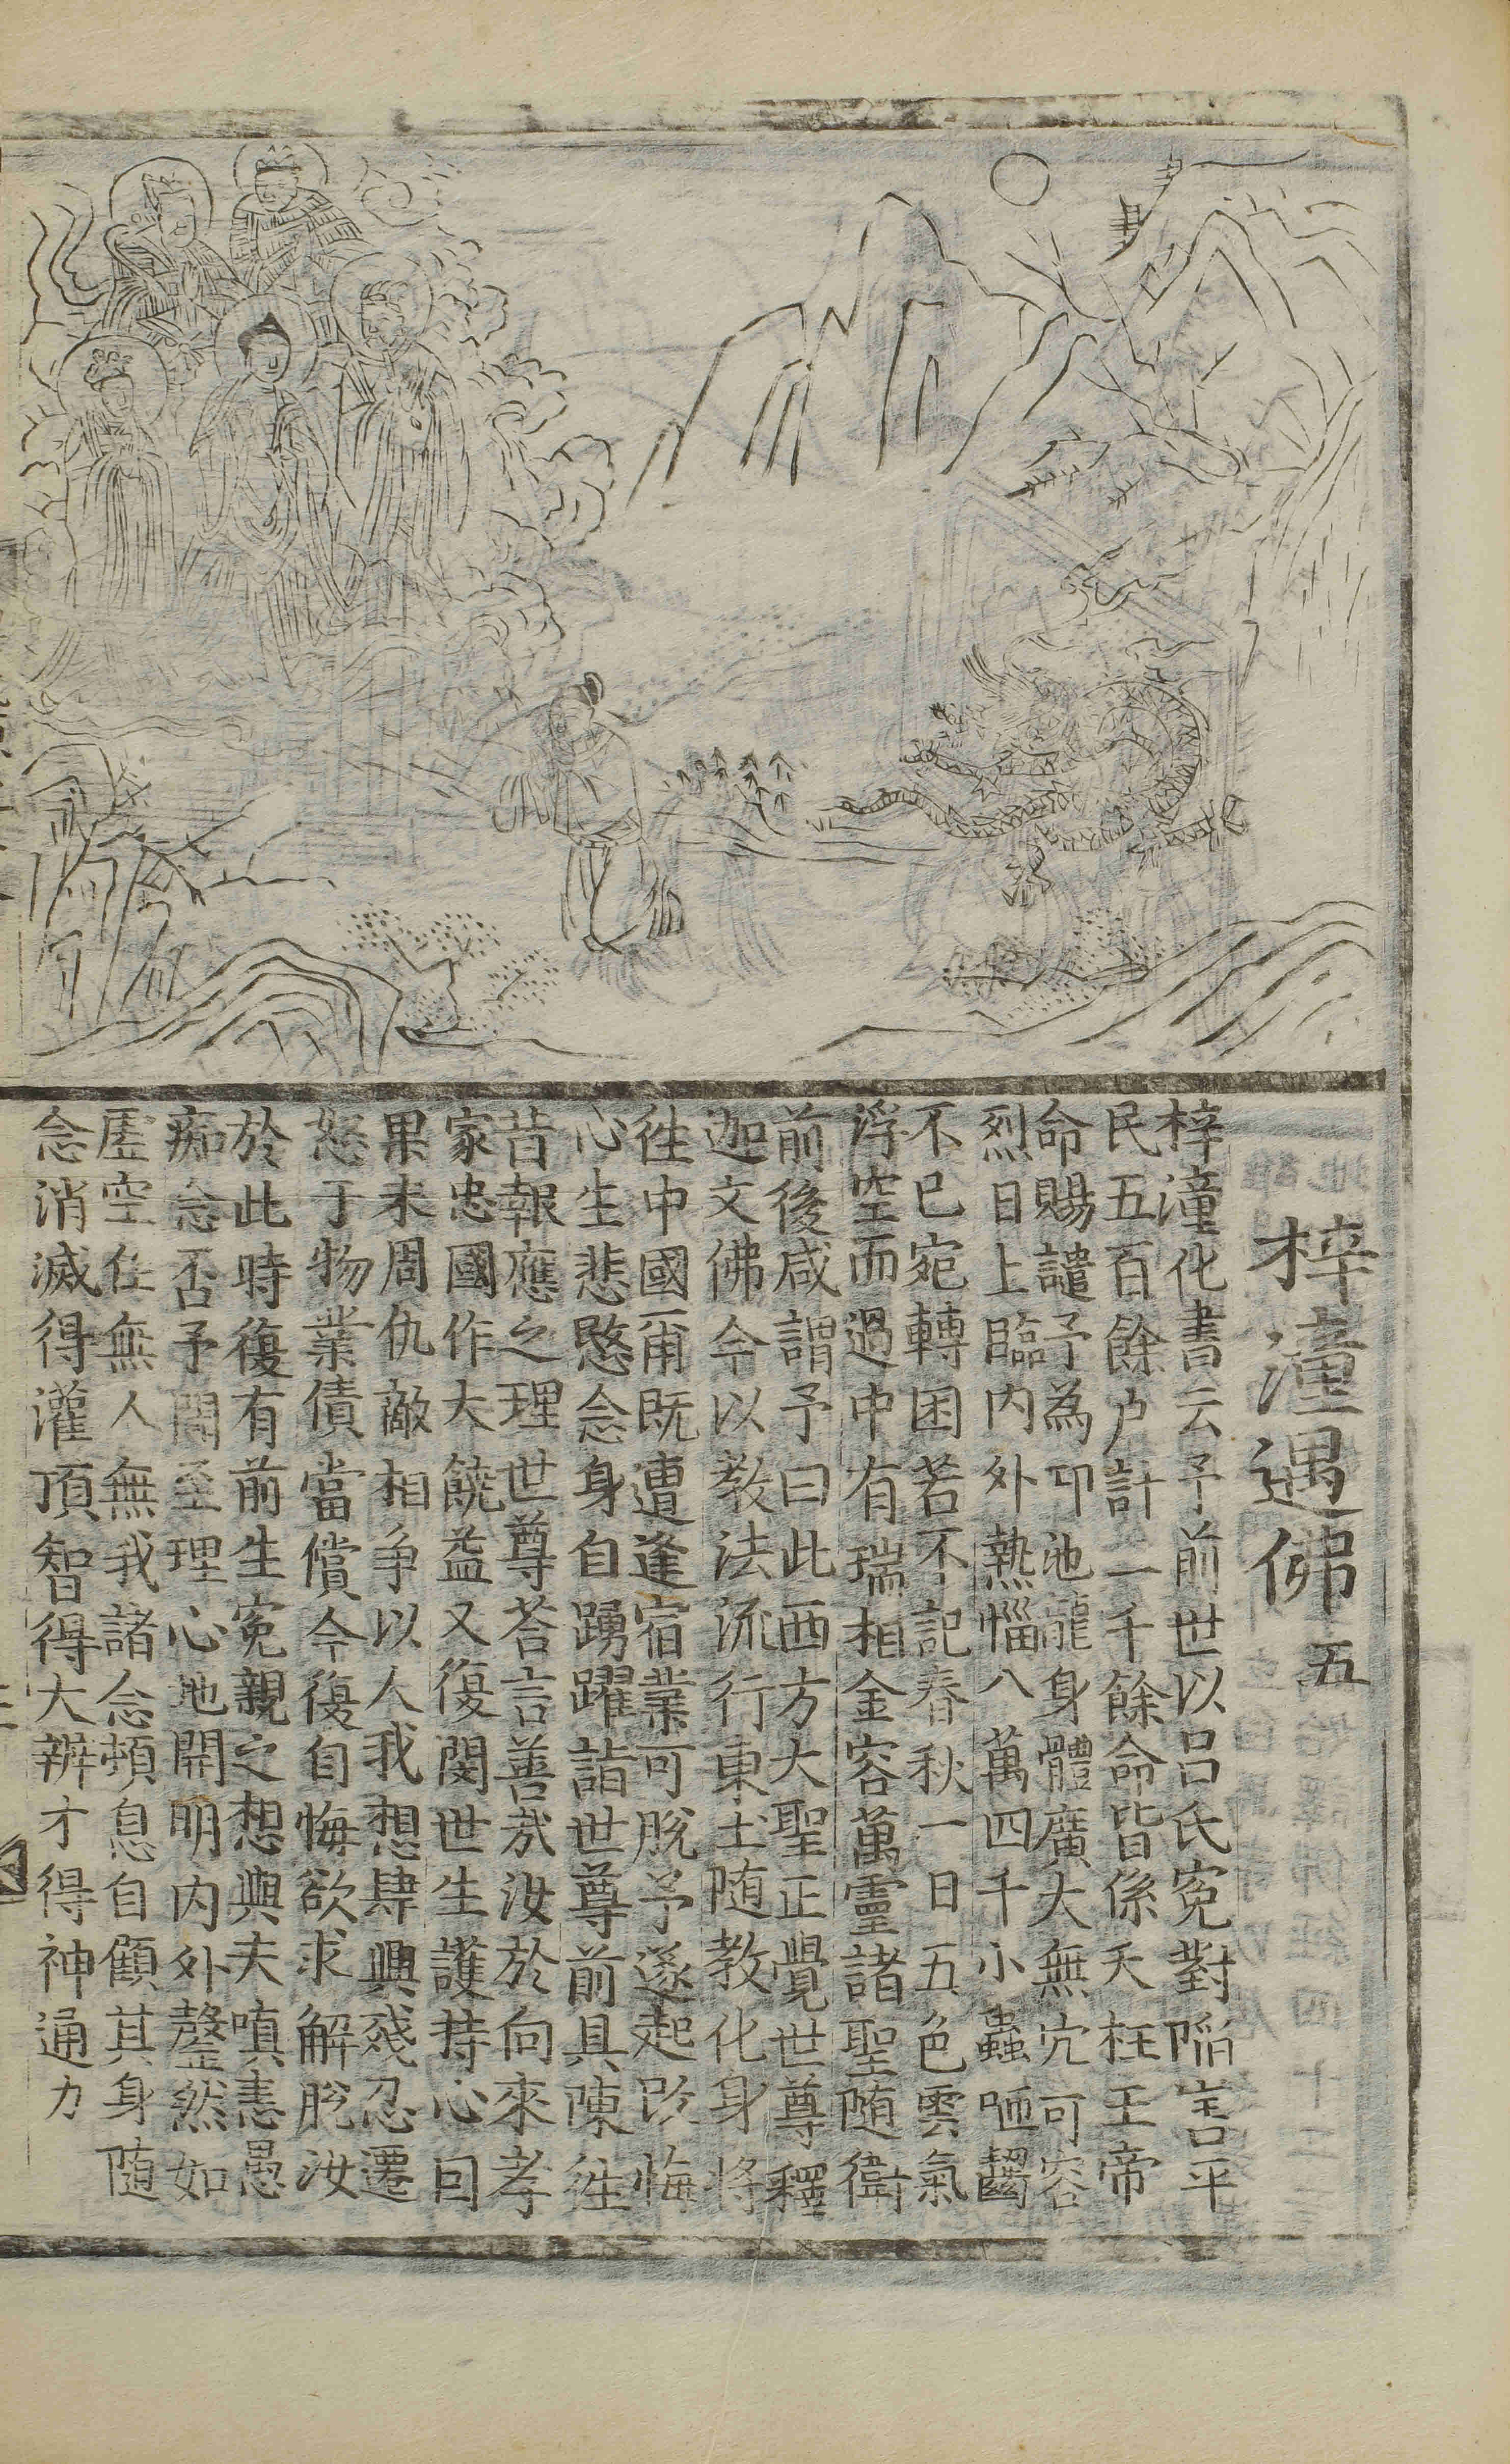 梓潼遇佛 五
梓潼化書云予前世以呂氏寃對陷害平
民五百餘户計二千餘命皆係夭枉王帝
命賜譴予為卭池龍身體廣大無穴可容
烈日上臨内外熱惱八萬四千小蟲咂齧
不已宛轉困苦不記春秋一日五色雲氣
浮空而過中有瑞相金容萬靈諸聖随衛
前後咸謂予曰此西方大聖正覺世尊釋
迦文佛今以教法流行東土随教化身将
徃中國甭既遭逢宿業可脫予遂起改悔
心生悲愍念身自踴躍詣世尊前具陳徃
昔報應之理世尊荅言善哉汝於向來孝
家忠國作大饒益又復閔世生護持心因
果未周仇敵相争以人我想肆興殘忍遷
怒于物業債當償今復自悔欲求解脫汝
於此時復有前生寃親之想與夫嗔恚愚
痴念否予聞至理心地開明内外罄然如
虛空住無人無我諸念頓息自顧其身随
念消滅得灌頂智得大辨才得神通力